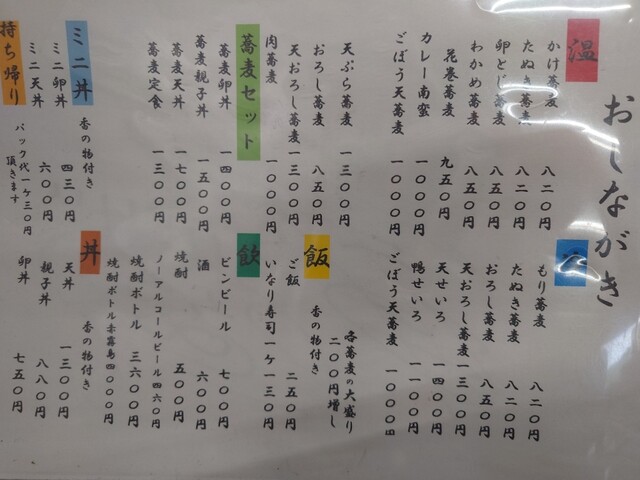 おしながき
温
かけ蕎麦 八二〇円
たぬき蕎麦 八二〇円
卵とじ蕎麦 八五〇円
わかめ蕎麦 八五〇円
花巻蕎麦 九五〇円
カレー南蛮 一〇〇〇円
ごぼう天蕎麦 一〇〇〇円
天ぷら蕎麦 一三〇〇円
おろし蕎麦 八五〇円
天おろし蕎麦 一三〇〇円
肉蕎麦 一〇〇〇円
蕎麦セット
蕎麦卵丼 一四〇〇円
蕎麦親子丼 一五〇〇円
蕎麦天丼 一七〇〇円
蕎麦定食 一三〇〇円
ミニ丼 香の物付き
ミニ卵丼 四三〇円
ミニ天丼 六〇〇円
持ち帰り
パック代一ケ三〇円
頂きます
もり蕎麦 八二〇円
たぬき蕎麦 八二〇円
おろし蕎麦 八五〇円
天おろし蕎麦 一三〇〇円
天せいろ 一四〇〇円
鴨せいろ 一一〇〇円
ごぼう天蕎麦 一〇〇〇円
各蕎麦の大盛り
二〇〇円増し
飯 香の物付き
ご飯 二五〇円
いなり寿司一ケ一三〇円
飲
ビンビール 七〇〇円
酒 六〇〇円
焼酎 五〇〇円
ノーアルコールビール 四六〇円
焼酎ボトル 三六〇〇円
焼酎ボトル赤霧島 四〇〇〇円
丼 香の物付き
天丼 一三〇〇円
親子丼 八八〇円
卵丼 七五〇円